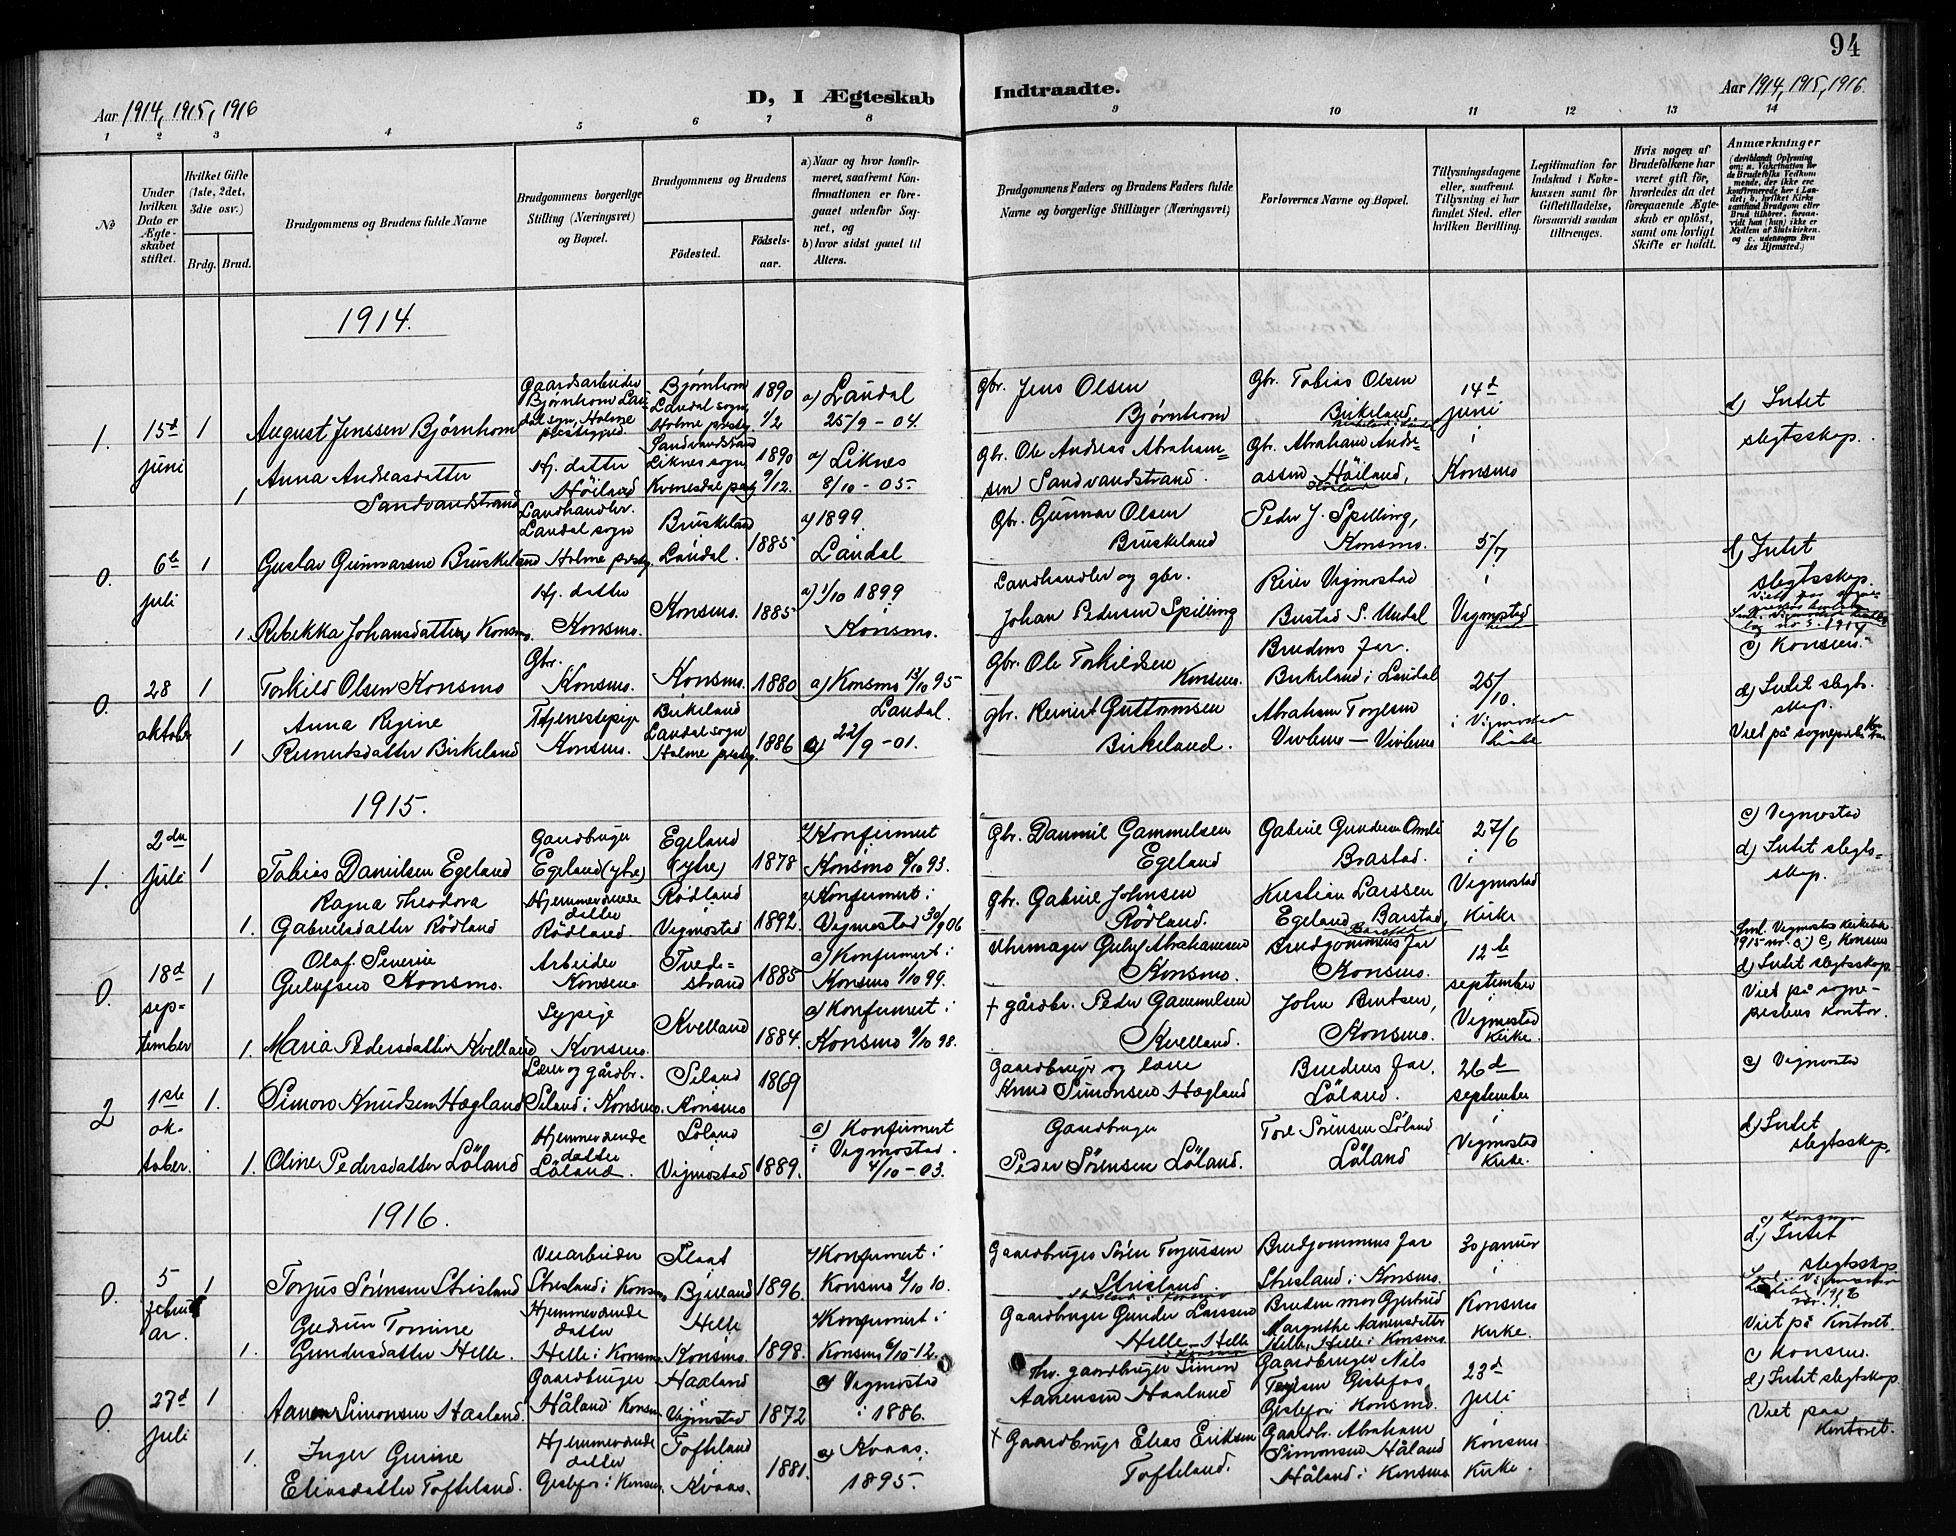 94
Aar 1914, 1915, 1916
D, I Ægteskab Indtraadte.
Aar 1914, 1915, 1916.
1 2 3 4 5 6 7 8 9 10 11 12 13 14
№
Under hvilken Dato er Ægteskabet stiftet.
Hvilket Gifte (1ste, 2det, 3die osv.)
Brdg. Brud.
Brudgommens og Brudens fulde Navne
Brudgommens borgerlige Stilling (Næringsvei) og Bopæl.
Brudgommens og Brudens
Födested.
Födselsaar.
a) Naar og hvor konfirmeret, saafremt Konfirmationen er foregaaet udenfor Sognet, og
b) hvor sidst gaaet til Alters.
Brudgommens Faders og Brudens Faders fulde Navne og borgerlige Stillinger (Næringsvei)
Forlovernes Navne og Bopæl.
Tillysningsdagene eller, saafremt Tillysning ei har fundet Sted, efter hvilken Bevilling.
Legitimation for Indskud i Enkekassen samt for Giftetilladelse, forsaavidt saadan tiltrænges.
Hvis nogen af Brudefolkene har været gift för, hvorledes da det foregaaende Ægteskab er oplöst, samt om lovligt Skifte er holdt.
Anmærkninger
1914.
1. 15d juni 1
August Jenssen Bjørnhom
Gaardsarbeider Bjørnhom Laudal sogn, Holme
Bjørnhom Laudal sogn, Holme prstg.
1890 1/2
a) Laudal 25/9 - 04.
Gbr. Jens Olsen Bjørnhom
Gbr. Tobias Olsen Birkeland,
14d juni i Konsmo
d) Intet slegtsskap.
1
Anna Andreasdatter Sandvandstrand
Hj. datter Höiland
Sandvandstrand Liknes sogn, Kvinesdal prstg
1890 9/12.
a) Liknes 8/10 - 05.
Gbr. Ole Andreas Abrahamsen Sandvandstrand.
Gbr. Abraham Andreassen Höiland,
0. 6te juli 1
Gustav Gunnarsen Bruskeland
Landhandler. Laudal sogn Holme prstg.
Bruskeland Laudal.
1885
a) 1899 Laudal
Gbr. Gunnar Olsen Bruskeland
Peder J. Spilling, Konsmo.
5/7 i Vigmostad kirke
d) Intet slegtsskap.
1.
Rebekka Johansdatter Konsmo.
Hj. datter Konsmo.
Konsmo.
1885
a) 1/10 1899 Konsmo.
Landhandler og gbr. Johan Pedersen Spilling
Reier Vigmostad Bustad S. Undal
c) Konsmo.
0. 28 oktober 1
Torkild Olsen Konsmo
Gbr. Konsmo.
Konsmo.
1880
a) Konsmo 13/10 95
Gbr. Ole Torkildsen Konsmo.
Brudens far. Birkeland i Laudal
25/10. i Vigmostad kirke
d) Intet slegtsskap.
Viet på sognepr.
1
Anna Regine Reinertsdatter Birkeland
Tjenestepige Konsmo.
Birkeland Laudal sogn Holme prstg.
1886
Laudal. a) 22/9 - 01.
gbr. Reinert Guttormsen Birkeland.
Abraham Torjesen Vivlemo - Vivlemo
1915.
1. 2den juli 1
Tobias Danielsen Egeland
Gaardbruger Egeland (ytre)
Egeland (ytre)
1878
a) Konfirmert Konsmo 8/10 93.
Gbr. Danniel Gammelsen Egeland
Gabriel Gundersen Omli Brastad.
27/6 i Vigmostad kirke
c) Vigmostad
d) Intet slegtsskap.
1.
Ragna Theodora Gabrielsdatter Rödland
Hjemmeværende datter Rödland.
Rödland Vigmostad
1892.
a) Konfirmert i Vigmostad 30/9 06
gbr. Gabriel Johnsen Rödland.
Kristian Larssen Egeland Barstad,
0. 18d september 1
Olaf Severin Gulufsen Konsmo.
Arbeider Konsmo
Tvedestrand
1885
a) Konfirmert i Konsmo 1/10 99.
Uhrmager Guluf Abrahamsen Konsmo.
Brudgommens far Konsmo.
12te september i Vigmostad kirke.
Sml. Vigmostad kirkebok 1915 nr.
c) Konsmo
d) Intet slegtsskap.
Viet på sogneprestens kontor.
1.
Maria Pedersdatter Kvelland
Sypige Konsmo.
Kvelland
1884.
a) Konfirmert i Konsmo 9/10 98.
+ gårdbr. Peder Gammelsen Kvelland.
John Berntsen, Konsmo.
2 1ste oktober. 1.
Simon Knudsen Hægland
Lærer og gårdbr. Seland i Konsmo
Seland Konsmo
1869
Gaardbruger og lærer Knud Simonsen Hægland
Brudens far, Löland.
26d september i Vigmostad kirke.
c) Vigmostad
d) Intet slegtsskap.
1.
Oline Pedersdatter Löland
Hjemmeværende datter Löland.
Löland Vigmostad
1889.
a) Konfirmert i Vigmostad. 4/10 - 03.
Gaardbruger Peder Sörensen Löland.
Tore Sörensen Löland Löland
1916.
0. 5 februar. 1
Torjus Sörensen Strisland
Veiarbeider Strisland i Konsmo
Slaat Bjelland
1896.
a) Konfirmert i Konsmo 2/10 10.
Gaardbruger Sören Torjussen Strisland
Brudgommens far Strisland i Konsmo.
30 januar i Konsmo kirke.
c) Konsmo
d) Intet slegtsskap
Viet på Kontoret.
1.
Gudrun Tomine Gundersdatter Helle.
Hjemmeværende datter Helle i Konsmo
Helle Konsmo.
1898.
a) Konfirmert i Konsmo 6/10 - 12.
Gaardbruger Gunder Larssen Helle
Brudens mor Gjertrud Margrethe Aanensdatter Helle, Helle i Konsmo.
0. 27d juli 1
Aanen Simonsen Haaland
Gaardbruger Håland i Konsmo
Haaland Vigmostad
1872
a) Vigmostad i 1886.
Fhv. gaardbruger Simon Aanensen Haaland
Gaardbruger Nils Terjesen Gislefos Gislefos i Konsmo.
23d juli i Konsmo kirke.
c) Konsmo.
d) Intet slegtsskap.
Viet paa Kontoret.
1.
Inger Gurine Eliasdatter Tofteland.
Hjemmeværende datter Gislefos i Konsmo
Tofteland Kvaas.
1881.
a) Kvaas. 1895.
+ Gaardbruger Elias Eriksen Tofteland.
Gaardbr. Abraham Simonsen Håland Håland i Konsmo